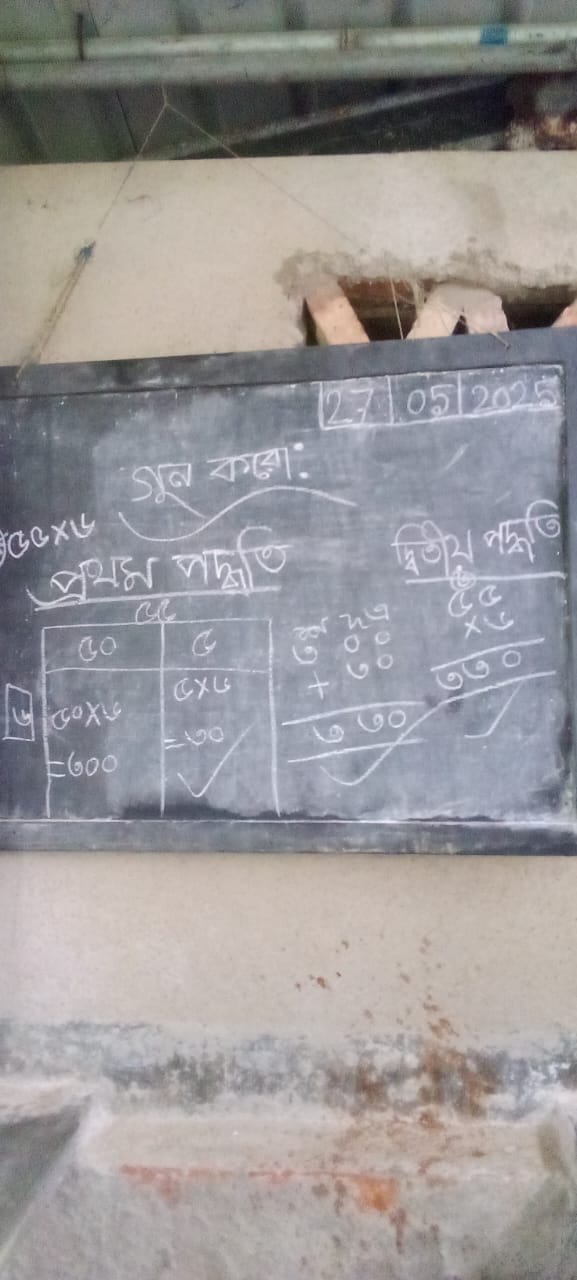 27 05 2025
গুন করো:
৫৫×৬
প্রথম পদ্ধতি
দ্বিতীয় পদ্ধতি
৫৫
৫০ ৫
৬
৫০×৬
=৩০০
৫×৬
=৩০
শ দ এ
৩ ০ ০
+ ৩০
৩ ৩০
৩
৫৫
×৬
৩৩০